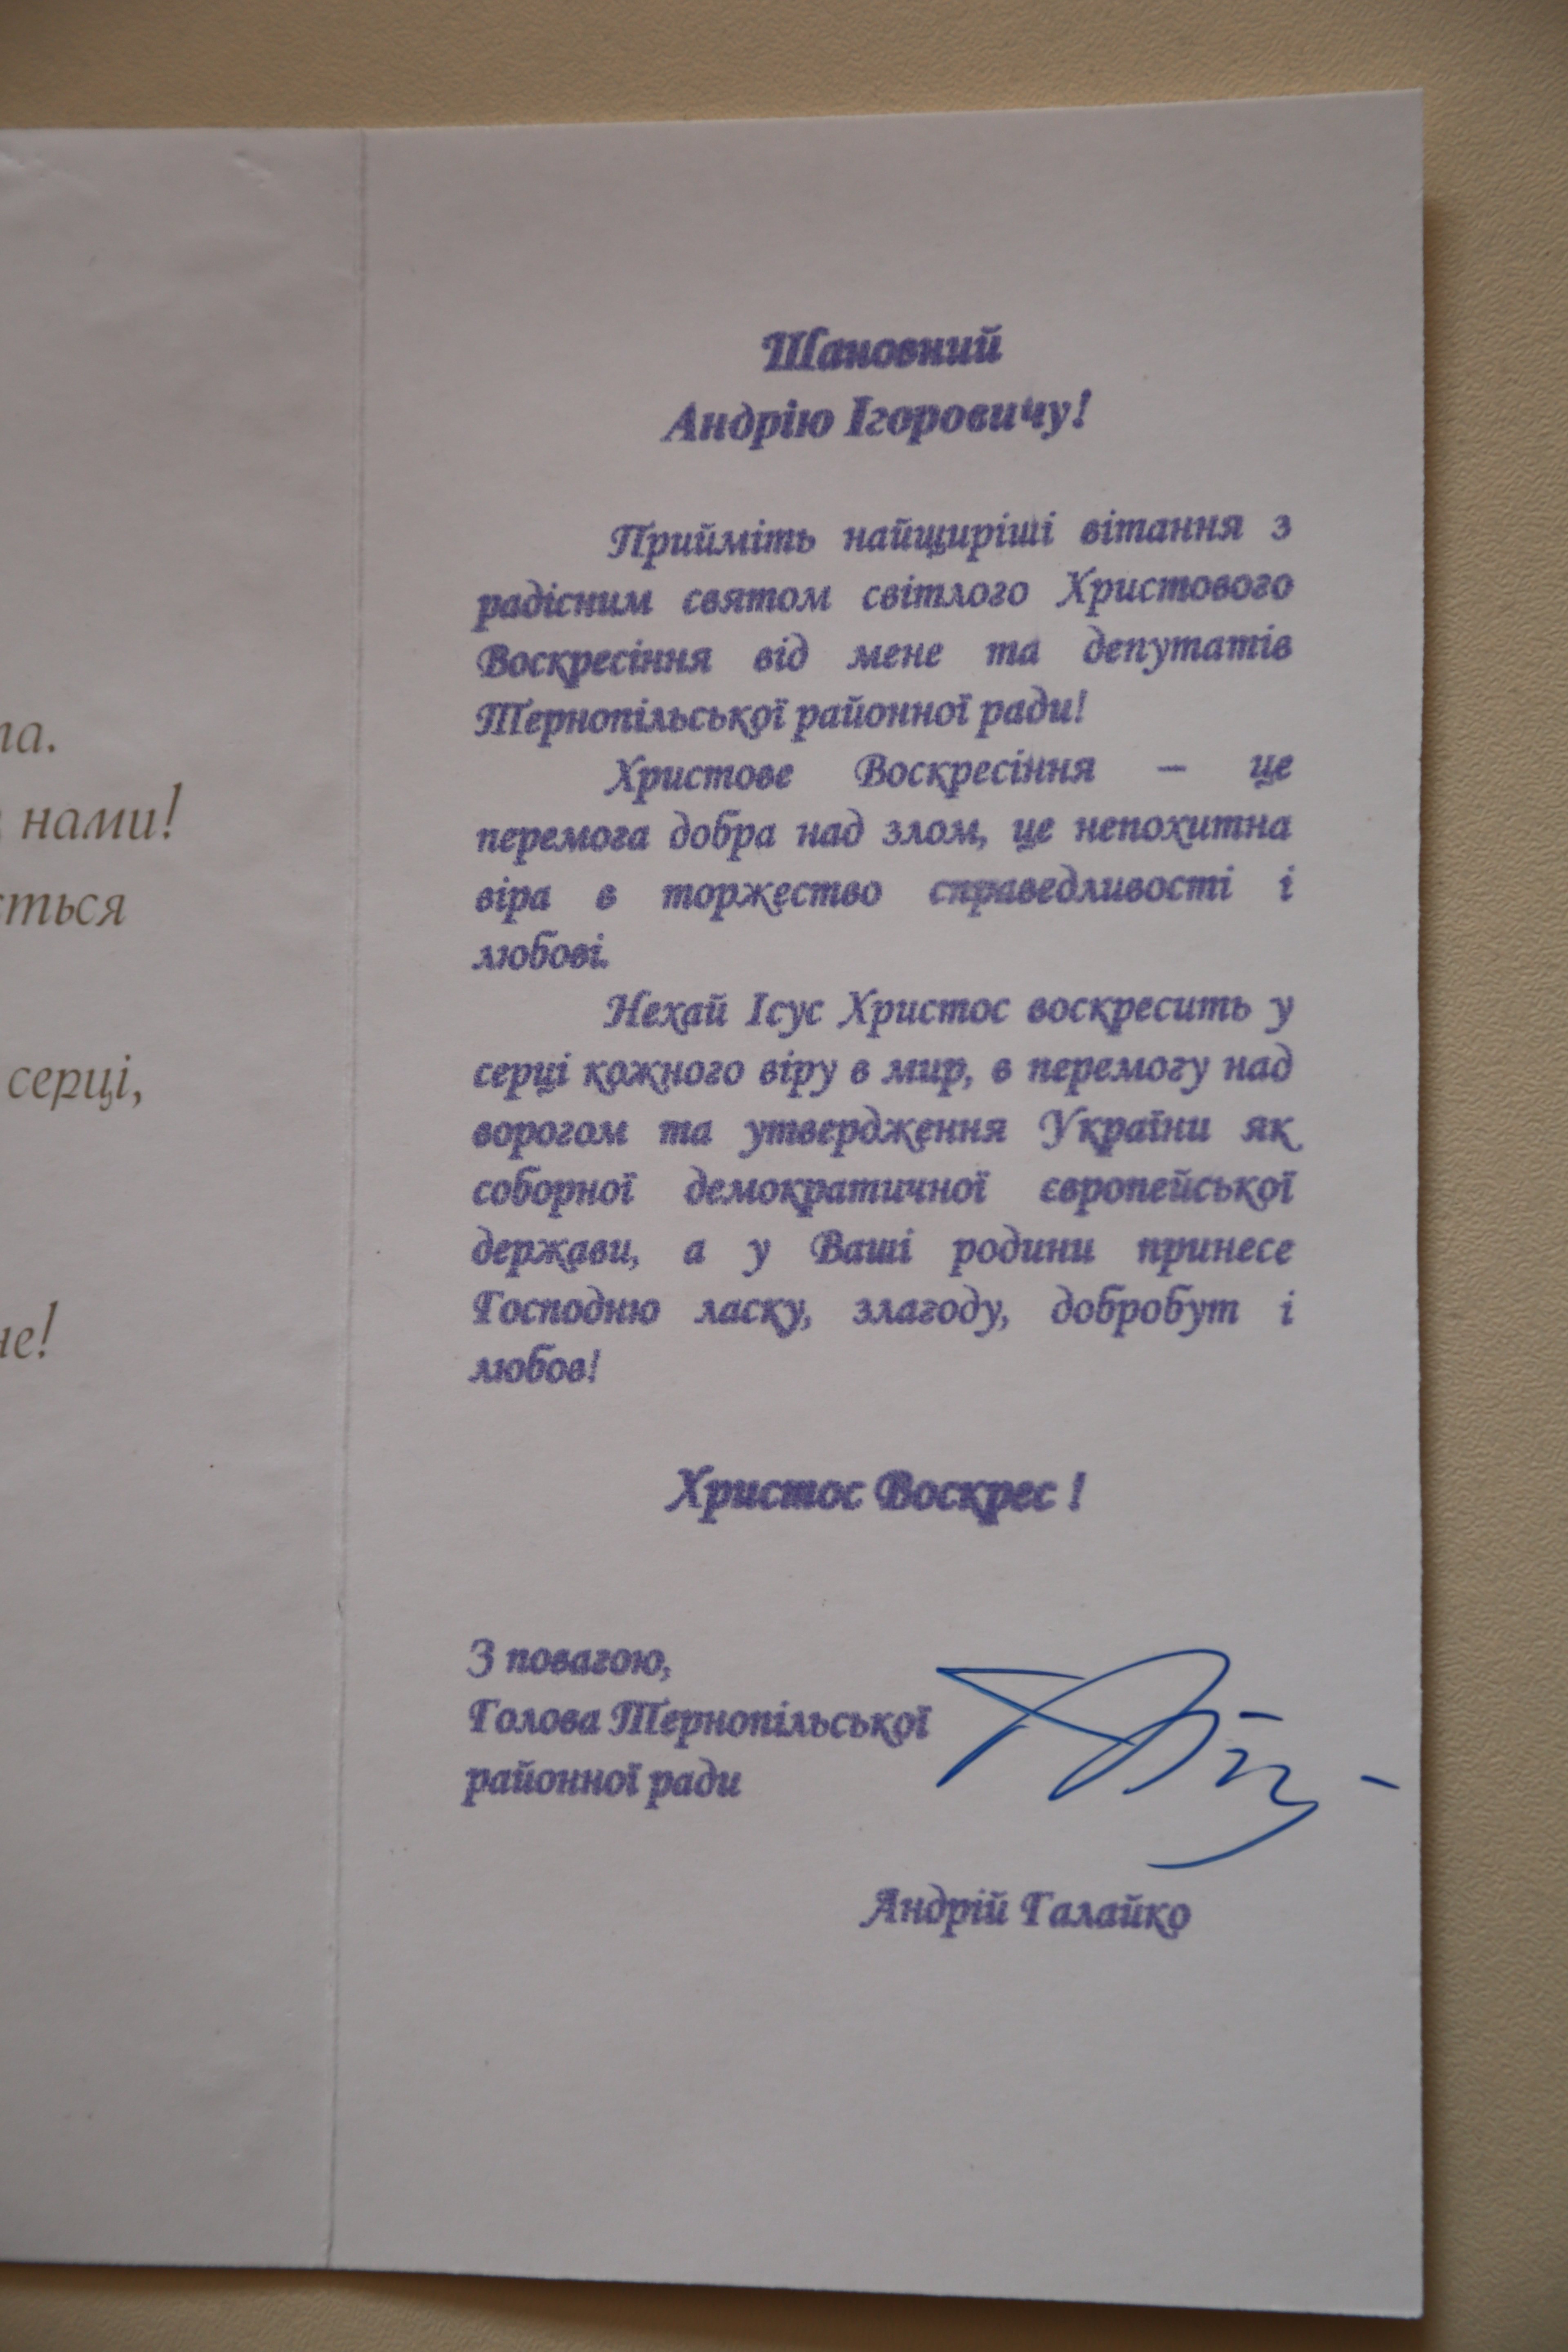 нами!
серці,
Шановний
Андрію Ігоровичу!
Прийміть найщиріші вітання з
радісним святом світлого Христового
Воскресіння від мене та депутатів
Тернопільської районної ради!
Христове Воскресіння – це
перемога добра над злом, це непохитна
віра в торжество справедливості і
любові.
Нехай Ісус Христос воскресить у
серці кожного віру в мир, в перемогу над
ворогом та утвердження України як
соборної демократичної європейської
держави, а у Ваші родини принесе
Господню ласку, злагоду, добробут і
любов!
Христос Воскрес !
З повагою,
Голова Тернопільської
районної ради
Андрій Галайко